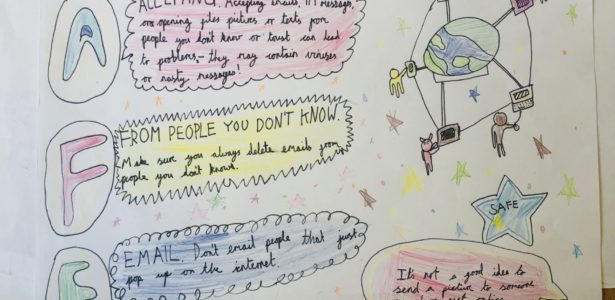 A
ACCEPTING. Accepting emails, IM messages,
or opening files pictures or texts from
people you don't know or trust can lead
to problems – they may contain viruses
or nasty messages!
F
FROM PEOPLE YOU DON'T KNOW.
Make sure you always delete emails from
people you don't know.
SAFE
E
EMAIL. Don't email people that just
pop up on the internet.
It's not a good idea to
send a picture to someone